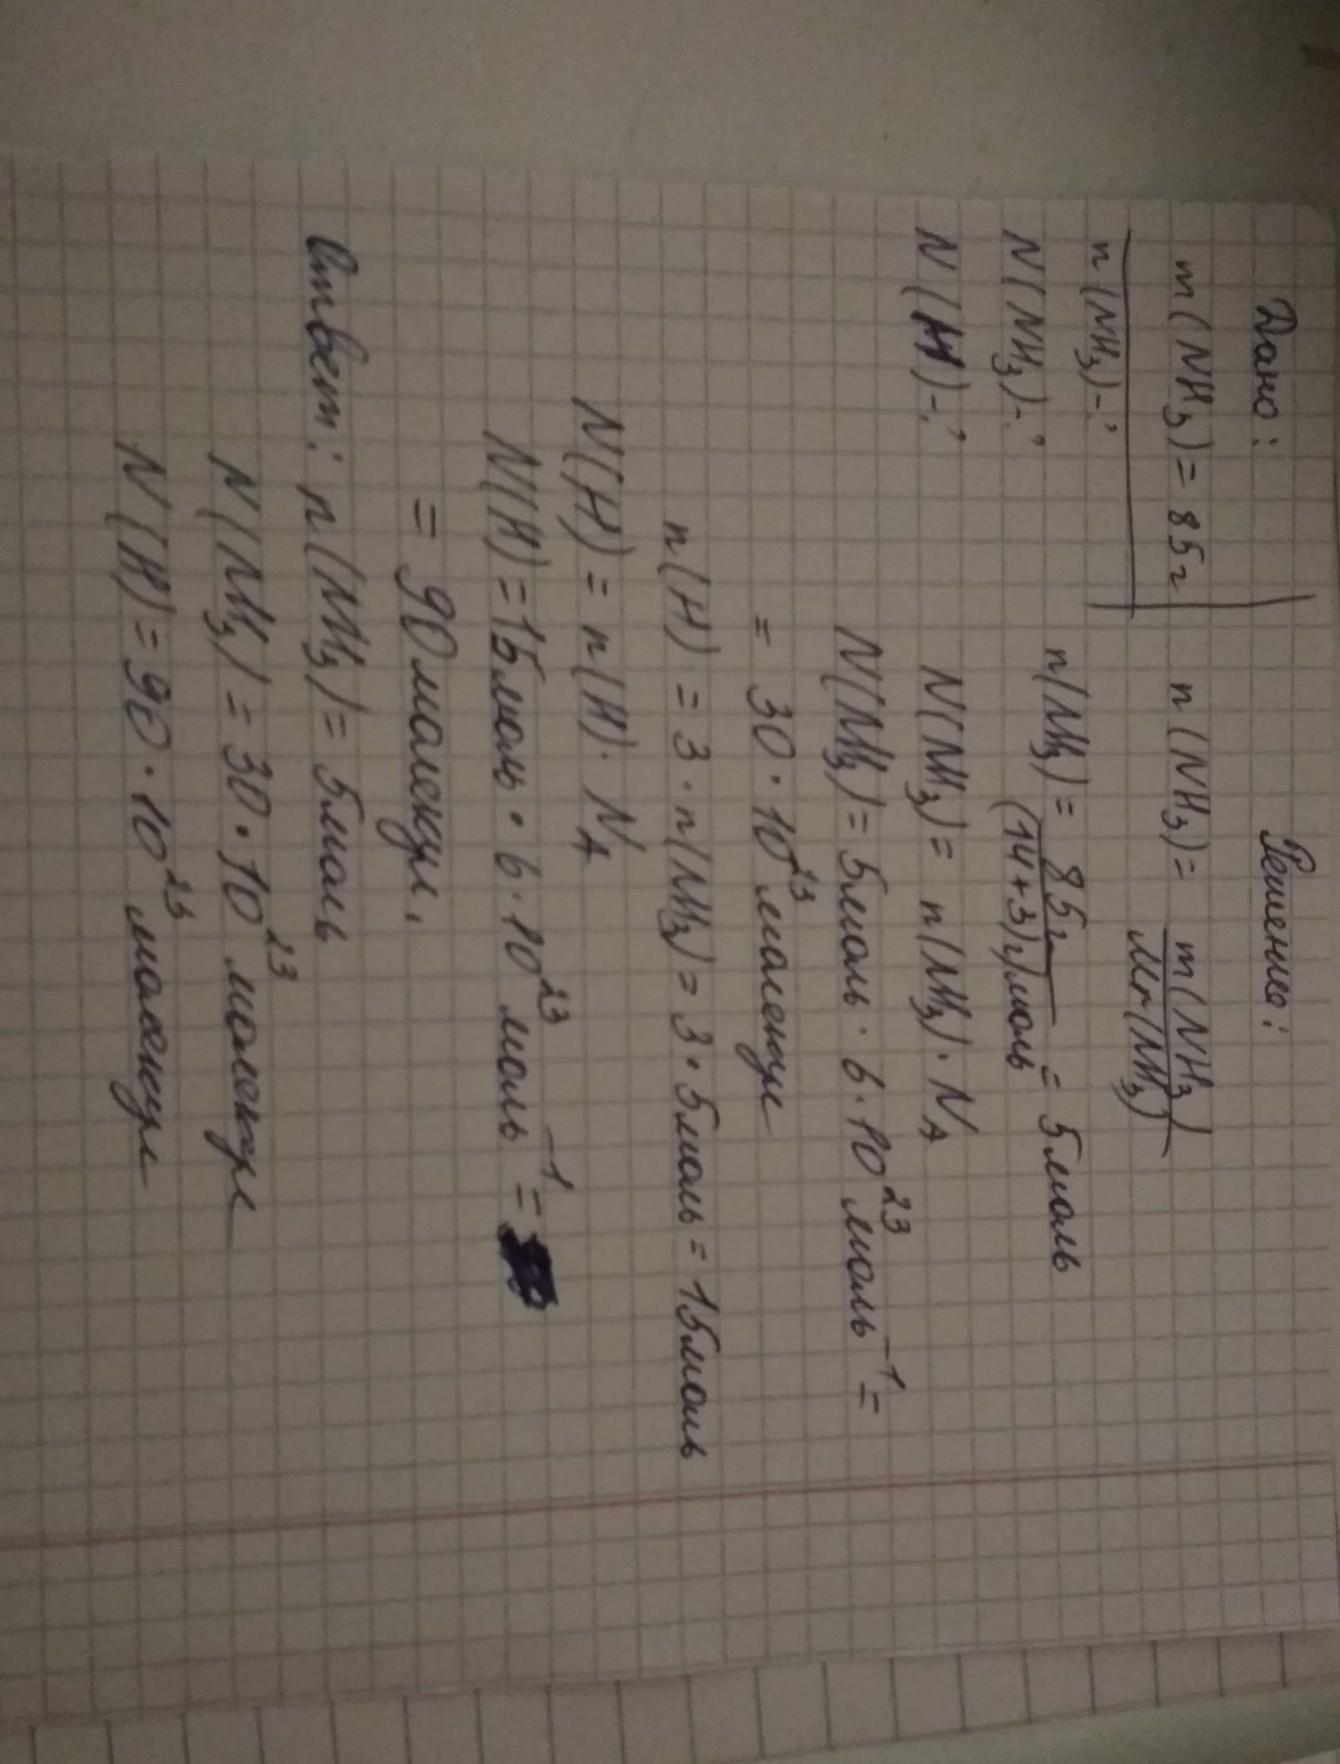 Дано: Решение:
m(NH₃) = 85г n(NH₃) = m(NH₃)/Mr(NH₃)
n(NH₃)-? n(NH₃) = 85г/(14+3)г/моль = 5моль
N(NH₃)-? N(NH₃) = n(NH₃)·N_A
N(H)-? N(NH₃) = 5моль · 6·10²³ моль⁻¹ =
= 30·10²³ молекул
n(H) = 3·n(NH₃) = 3·5моль = 15моль
N(H) = n(H)·N_A
N(H) = 15моль · 6·10²³ моль⁻¹ =
= 90 молекул.
Ответ: n(NH₃) = 5моль
N(NH₃) = 30·10²³ молекул
N(H) = 90·10²³ молекул